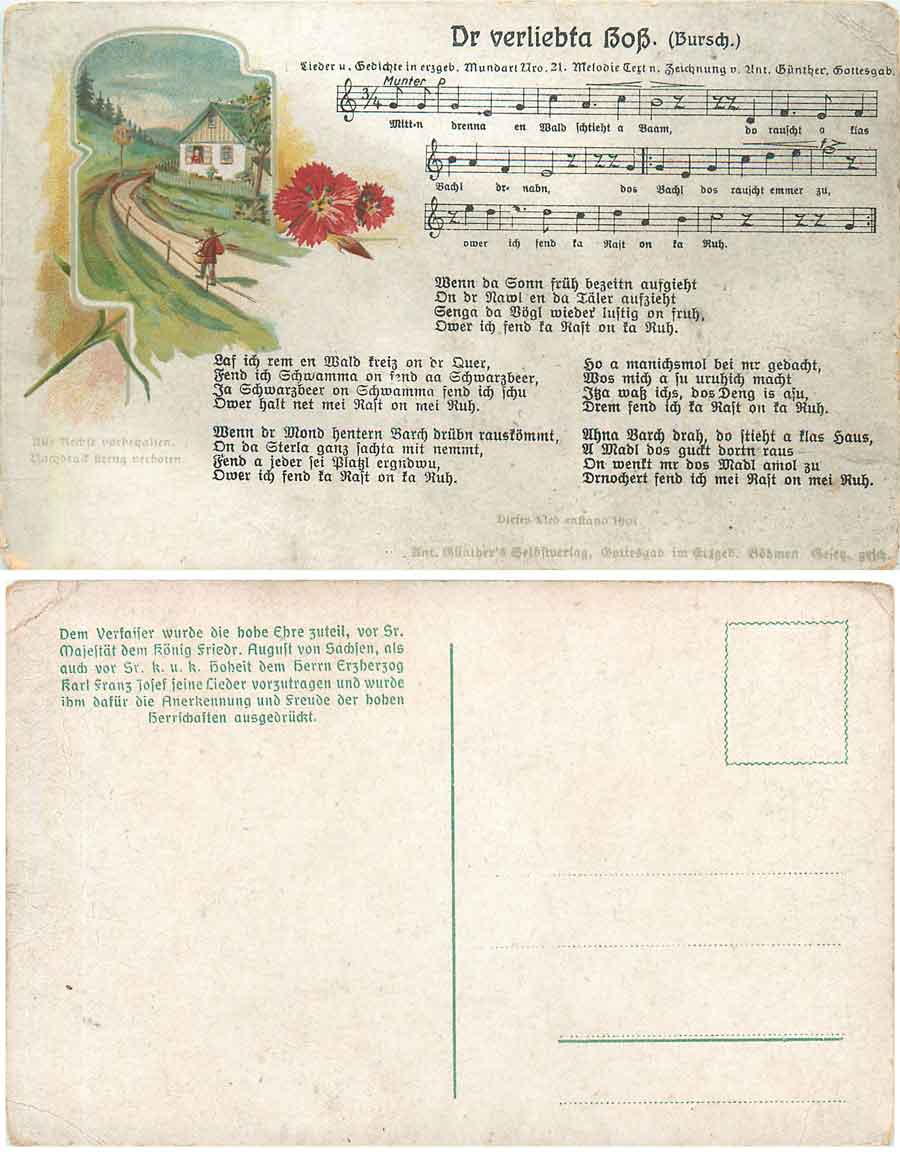 Dr verliebta Boß. (Bursch.)
Lieder u. Gedichte in erzgeb. Mundart Nro. 21. Melodie Text n. Zeichnung v. Ant. Günther, Gottesgab.
Munter p
3/4
Mitt-n drenna en Wald schtieht a Baam, do rauscht a klas
f
Bachl dr- nabn, dos Bachl dos rauscht emmer zu,
p
ower ich fend ka Rast on ka Ruh.
Wenn da Sonn früh bezeitn aufgieht
On dr Nawl en da Täler aufzieht
Senga da Vögl wieder lustig on fruh,
Ower ich fend ka Rast on ka Ruh.
Laf ich rem en Wald kreiz on dr Quer,
Fend ich Schwamma on fend aa Schwarzbeer,
Ja Schwarzbeer on Schwamma fend ich schu
Ower halt net mei Rast on mei Ruh.
Wenn dr Mond hentern Barch drübn rauskömmt,
On da Sterla ganz sachta mit nemmt,
Fend a jeder sei Platzl ergndwu,
Ower ich fend ka Rast on ka Ruh.
Ho a manichsmol bei mr gedacht,
Wos mich a su uruhich macht
Itza waß ichs, dos Deng is asu,
Drem fend ich ka Rast on ka Ruh.
Ahna Barch drah, do stieht a klas Haus,
A Madl dos guckt dortn raus
On wenkt mr dos Madl amol zu
Drnochert fend ich mei Rast on mei Ruh.
Alle Rechte vorbehalten.
Nachdruck streng verboten.
Dieses Lied enstand 1901
Ant. Günther's Selbstverlag, Gottesgab im Erzgeb. Böhmen Gesetz. gesch.
Dem Verfasser wurde die hohe Ehre zuteil, vor Sr.
Majestät dem König Friedr. August von Sachsen, als
auch vor Sr. k. u. k. Hoheit dem Herrn Erzherzog
Karl Franz Josef seine Lieder vorzutragen und wurde
ihm dafür die Anerkennung und Freude der hohen
Herrschaften ausgedrückt.